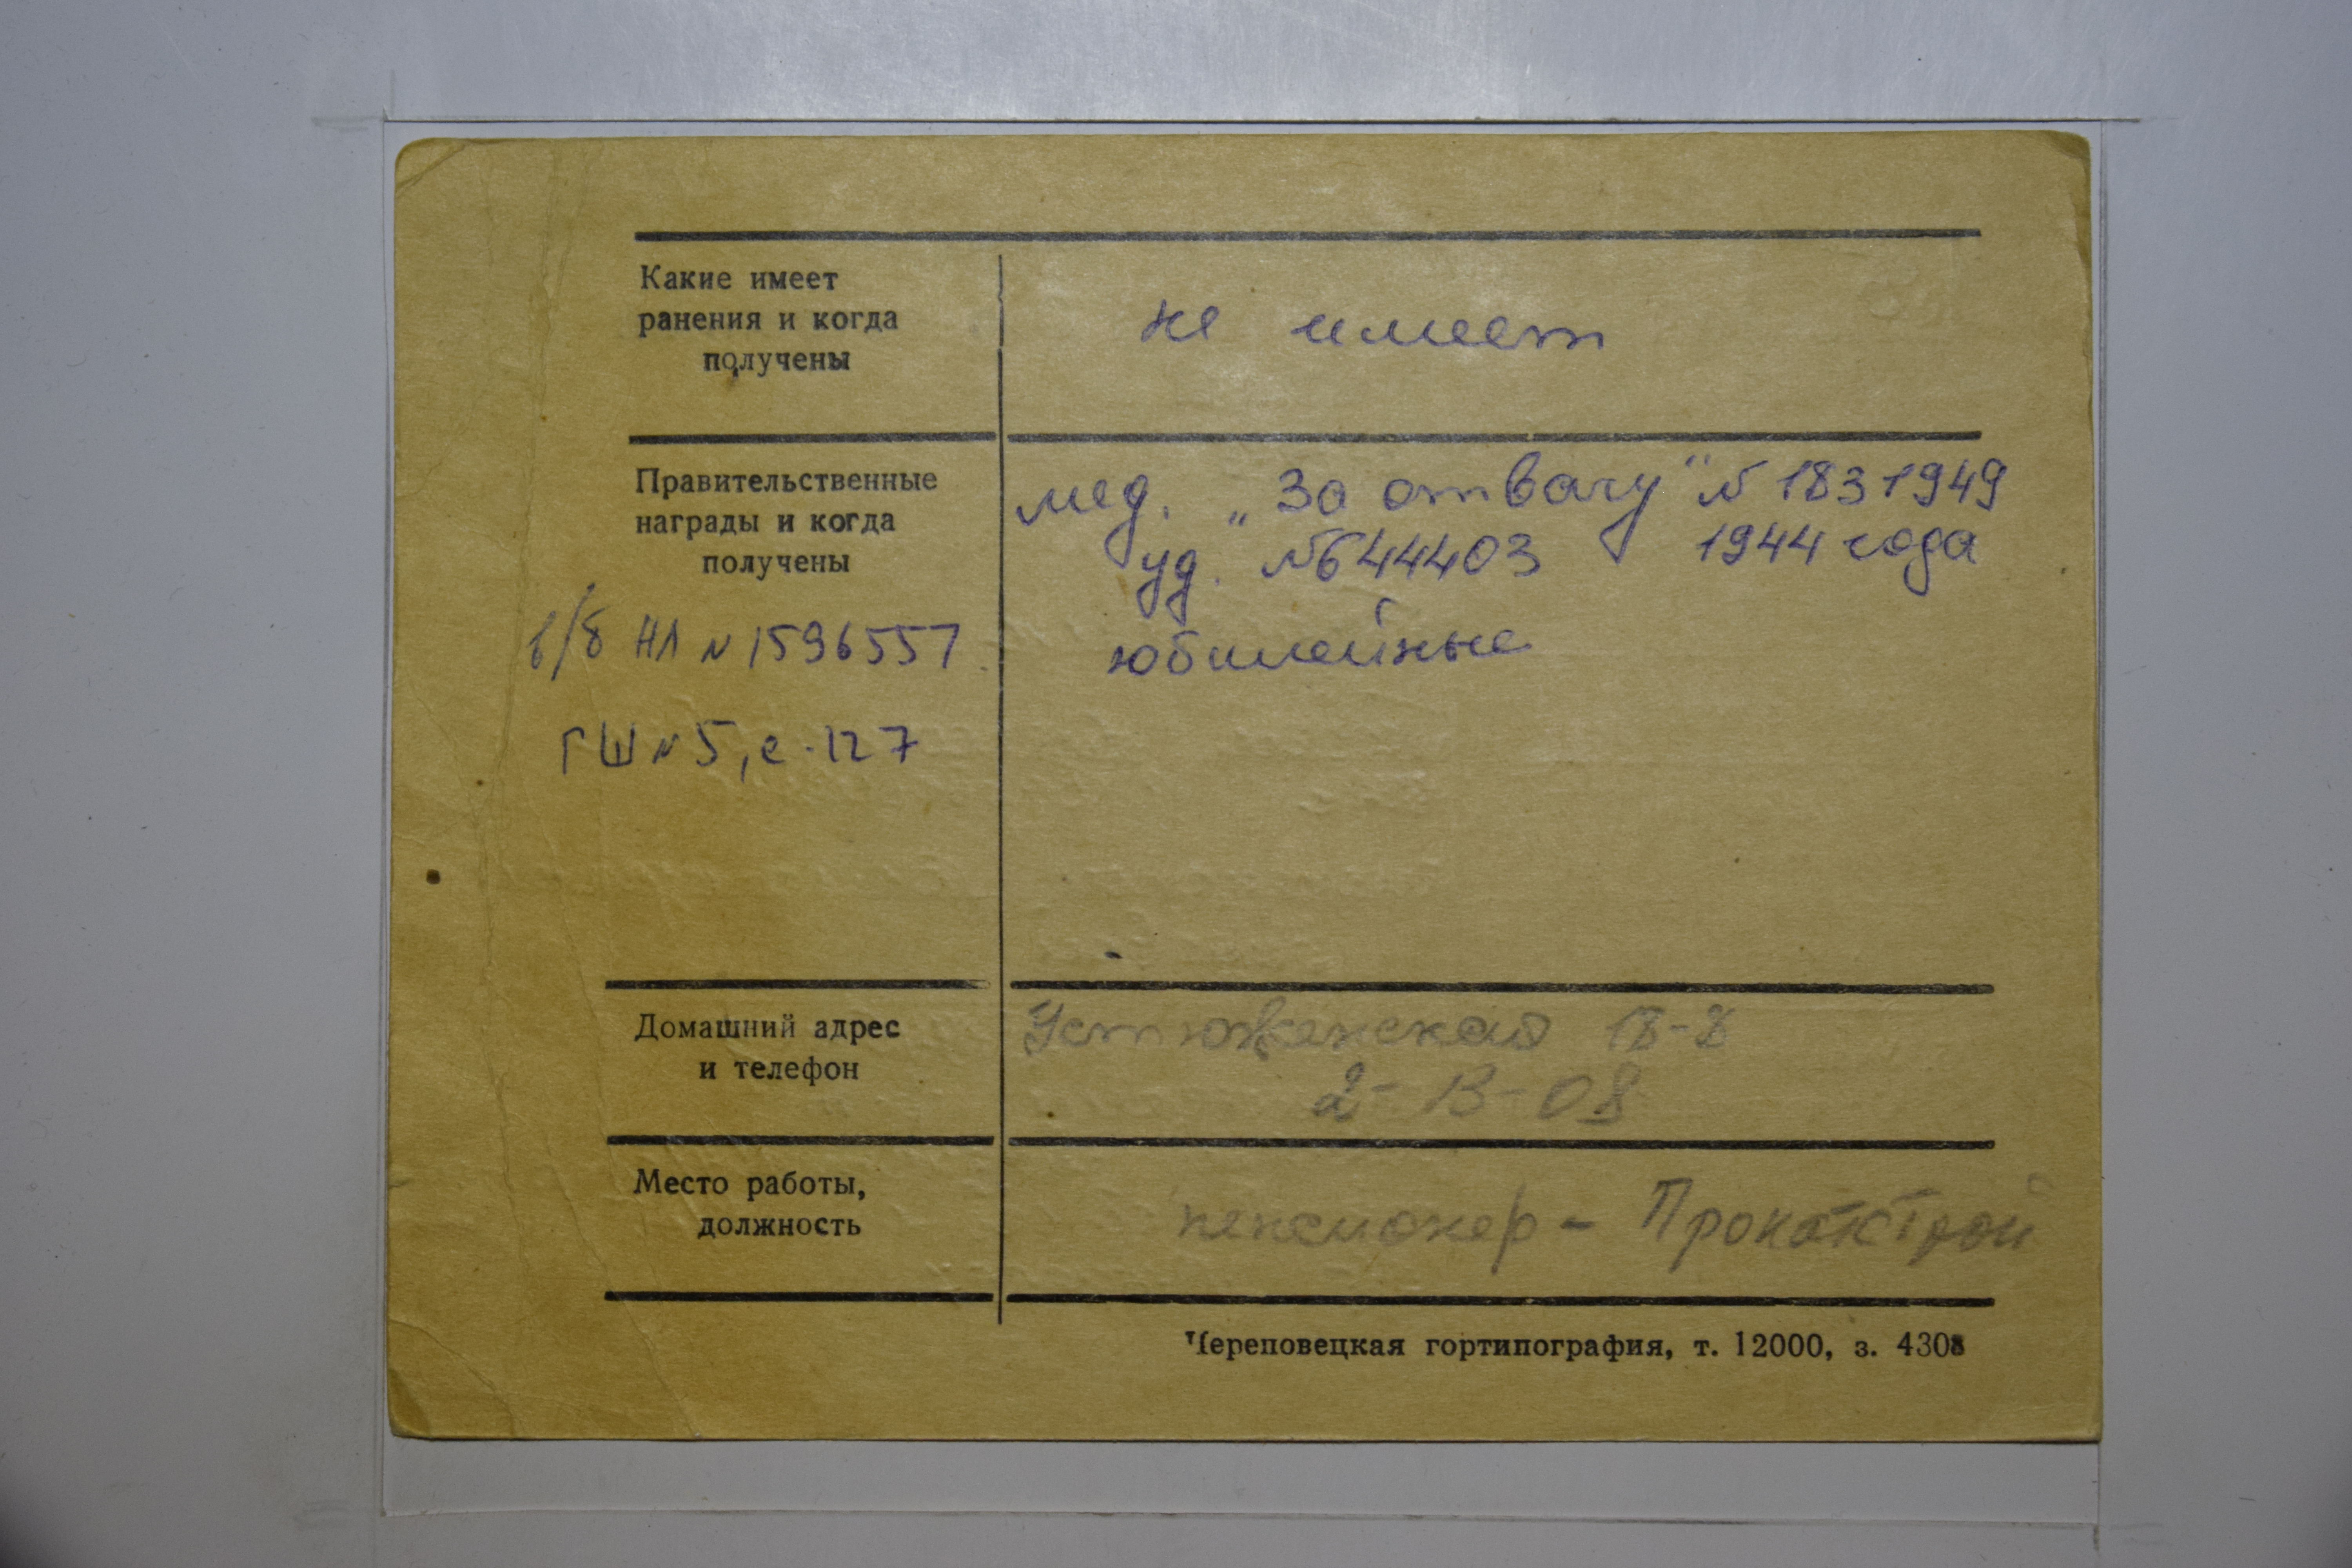 Какие имеет
ранения и когда
получены
не имеет
Правительственные
награды и когда
получены
мед. „За отвагу" № 1831949
уд. №644403 1944 года
юбилейные
в/б НЛ № 1596557
ГШ № 5, с. 127
Домашний адрес
и телефон
Устюженская 18-8
2-13-08
Место работы,
должность
пенсионер - Прокатстрой
Череповецкая гортипография, т. 12000, з. 4308